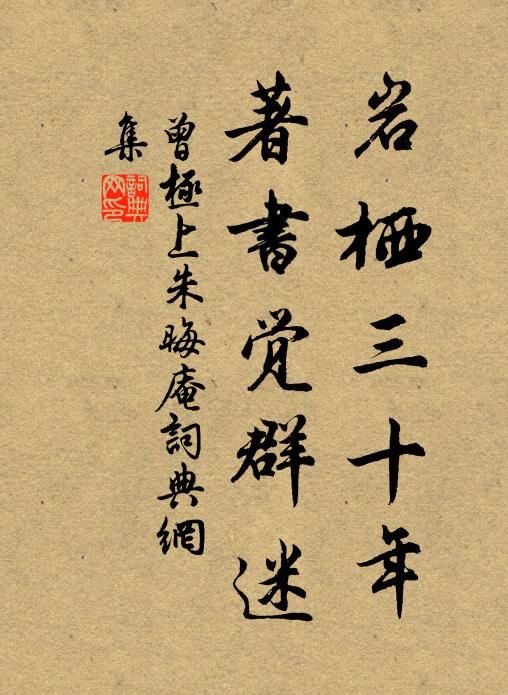 岩栖三十年
著書觉群迷
曾極上朱晦庵詞典網
集
詞典网印